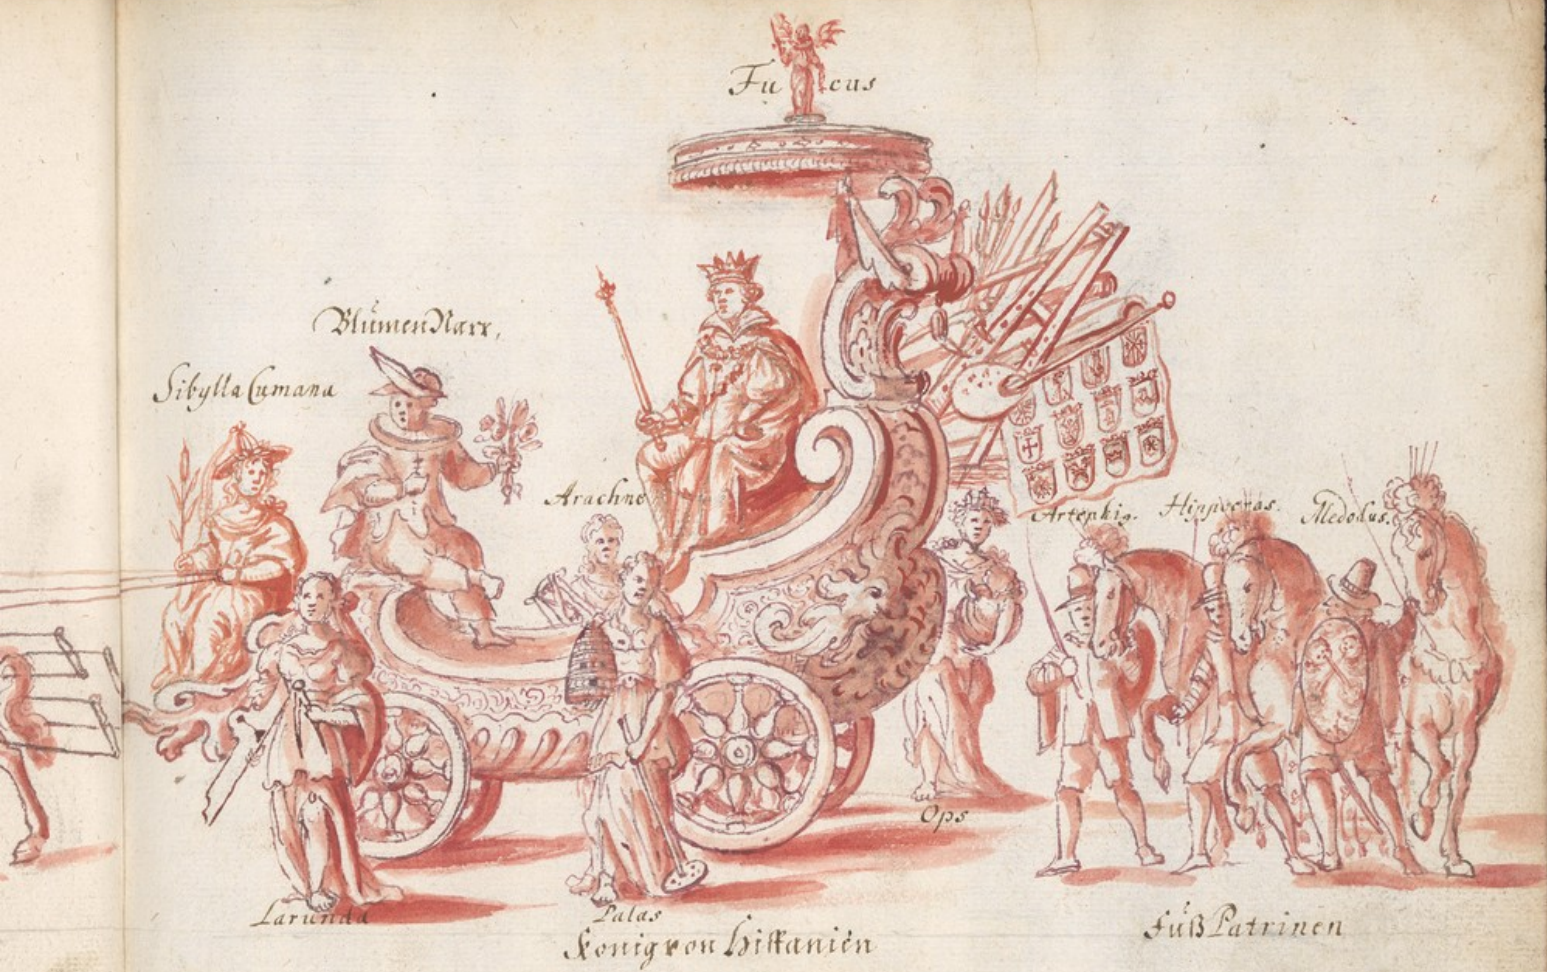 Fucus
BlümenNarr,
Sibylla Cumana
Arachne
Artephig. Hippocras. Medodus.
Ops
Larunda
Palas
König von Hispanien
Füß Patrinen